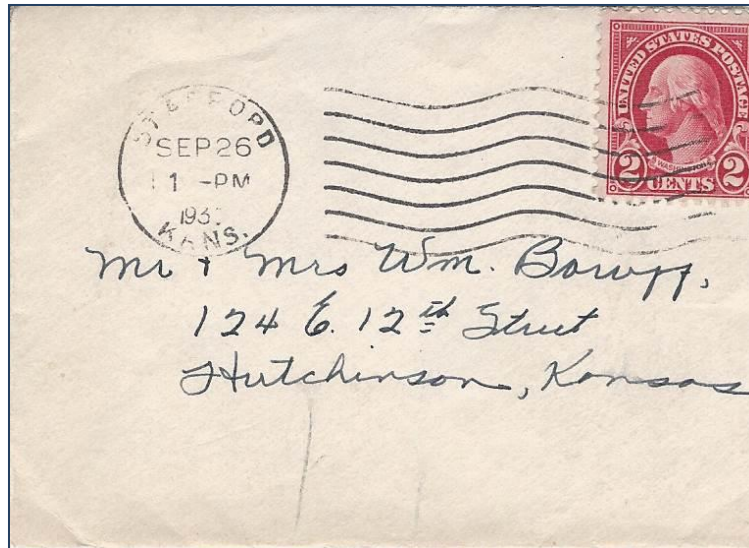 STAFFORD
SEP 26
1 -PM
193
KANS.
UNITED STATES POSTAGE
WASHINGTON
2 CENTS 2
Mr + Mrs Wm.
124 E. 12th Street
Hutchinson, Kansas